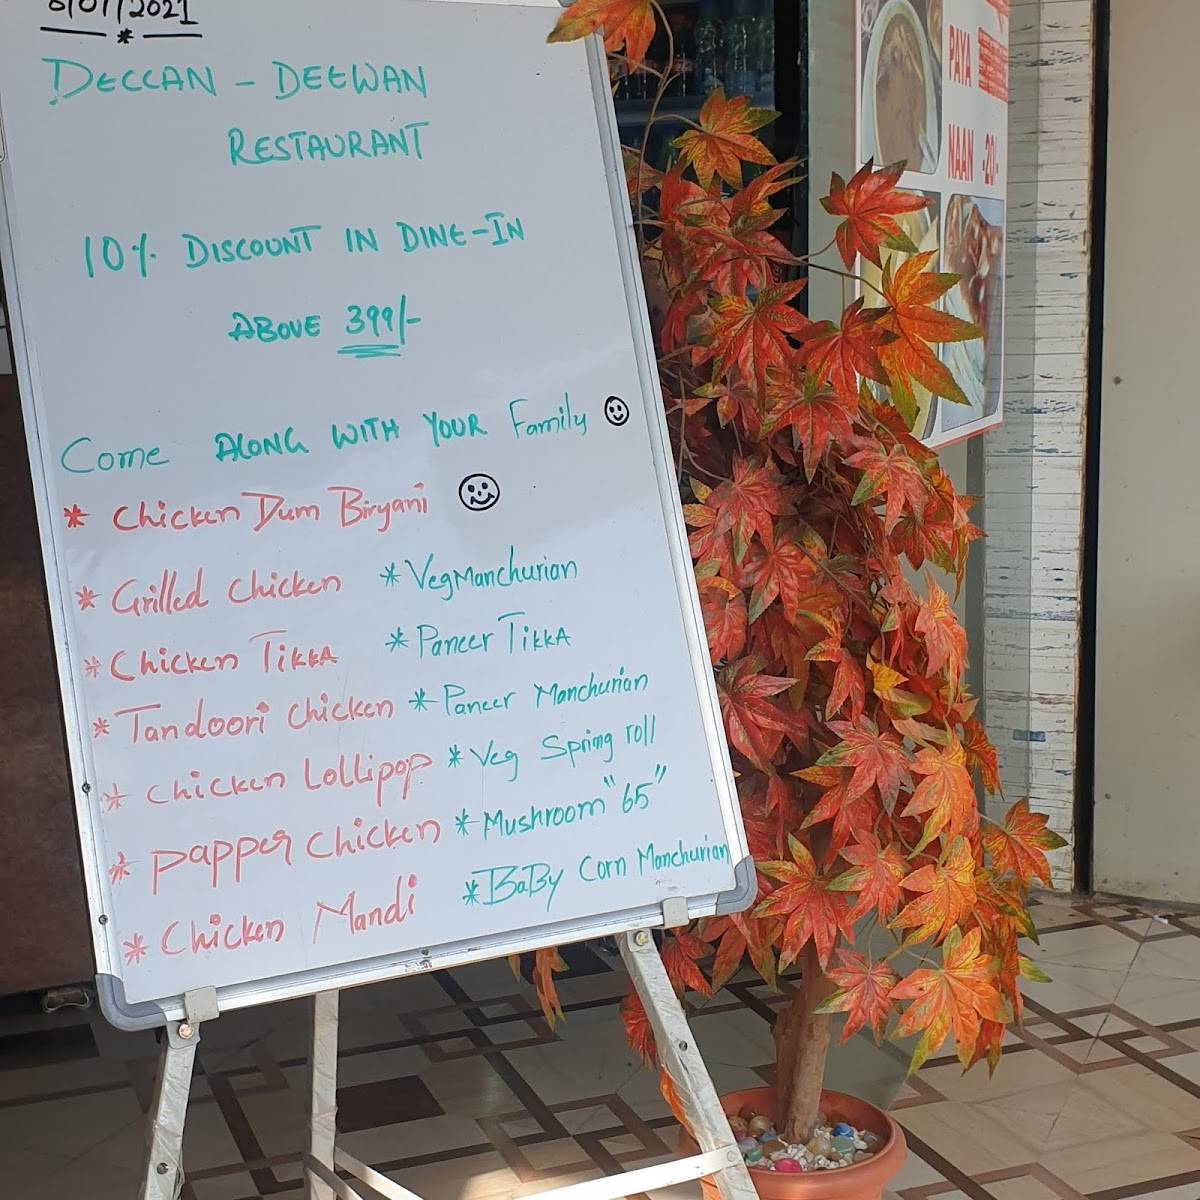 6/07/2021
DECCAN - DEEWAN
RESTAURANT
10% DISCOUNT IN DINE-IN
ABOVE 399/-
Come ALONG WITH YOUR Family
* Chicken Dum Biryani
* Grilled Chicken * Veg Manchurian
* Chicken TIKKA * Paneer TIKKA
* Tandoori Chicken * Paneer Manchurian
* Chicken Lollipop * Veg Spring roll
* Papper Chicken * Mushroom "65"
* Chicken Mandi * BaBy Corn Manchurian
PAYA
NAAN -20/-